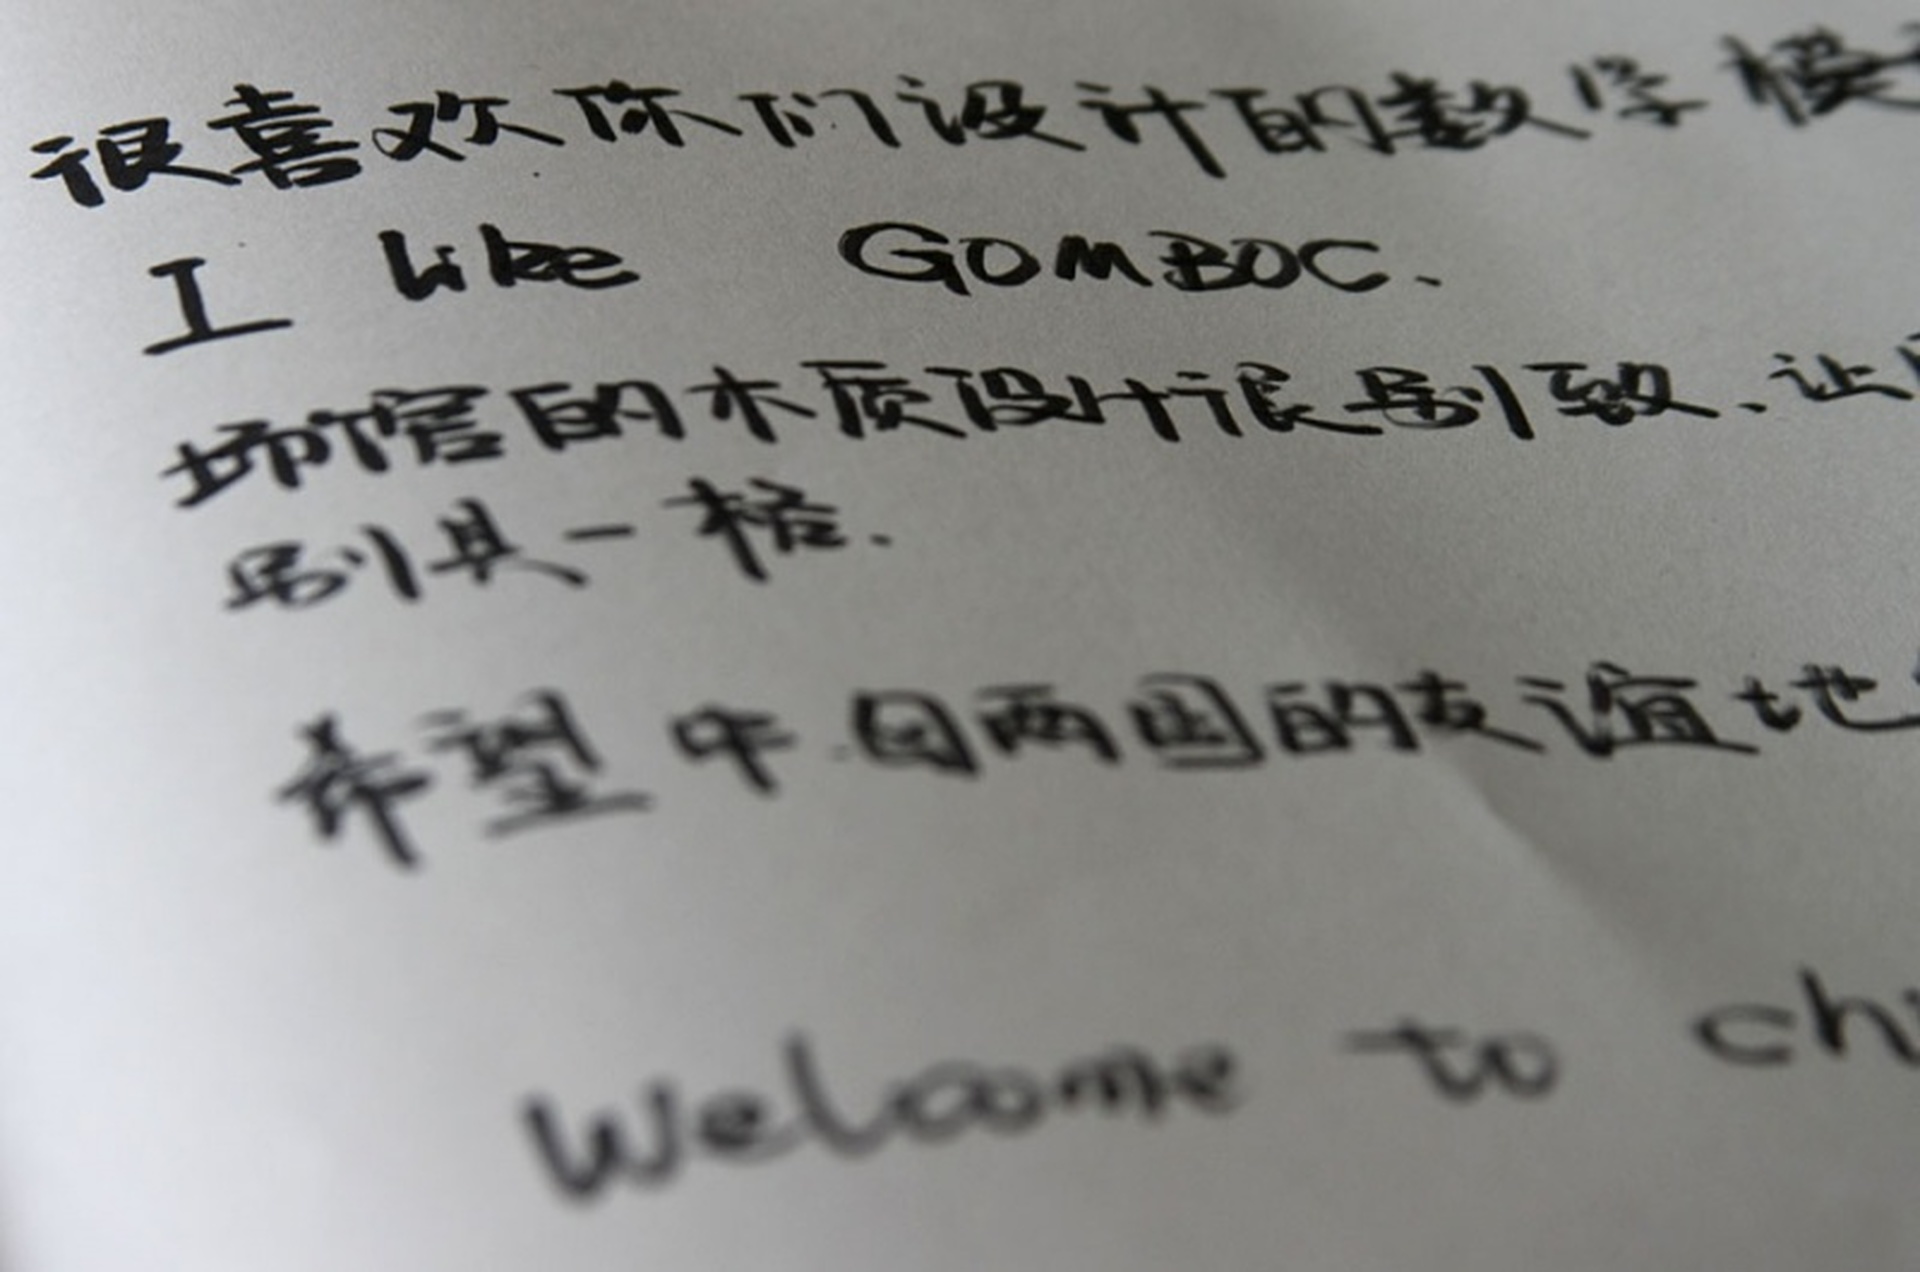 很喜欢你们设计的数学模
I like GOMBOC.
场馆的木质设计很别致.让
别具一格.
希望中国两国的友谊地
Welcome to chi